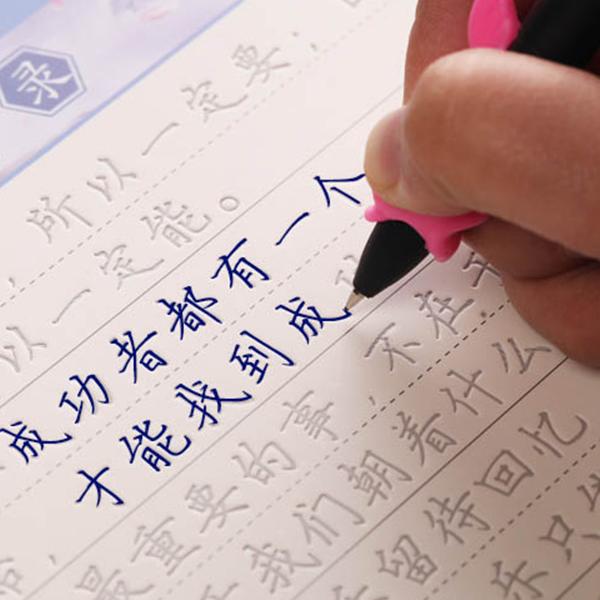 录
所以一定要，
以一定能。
成功者都有一个
才能找到成
最重要的事，不在
我们朝着什么
留待回忆
只